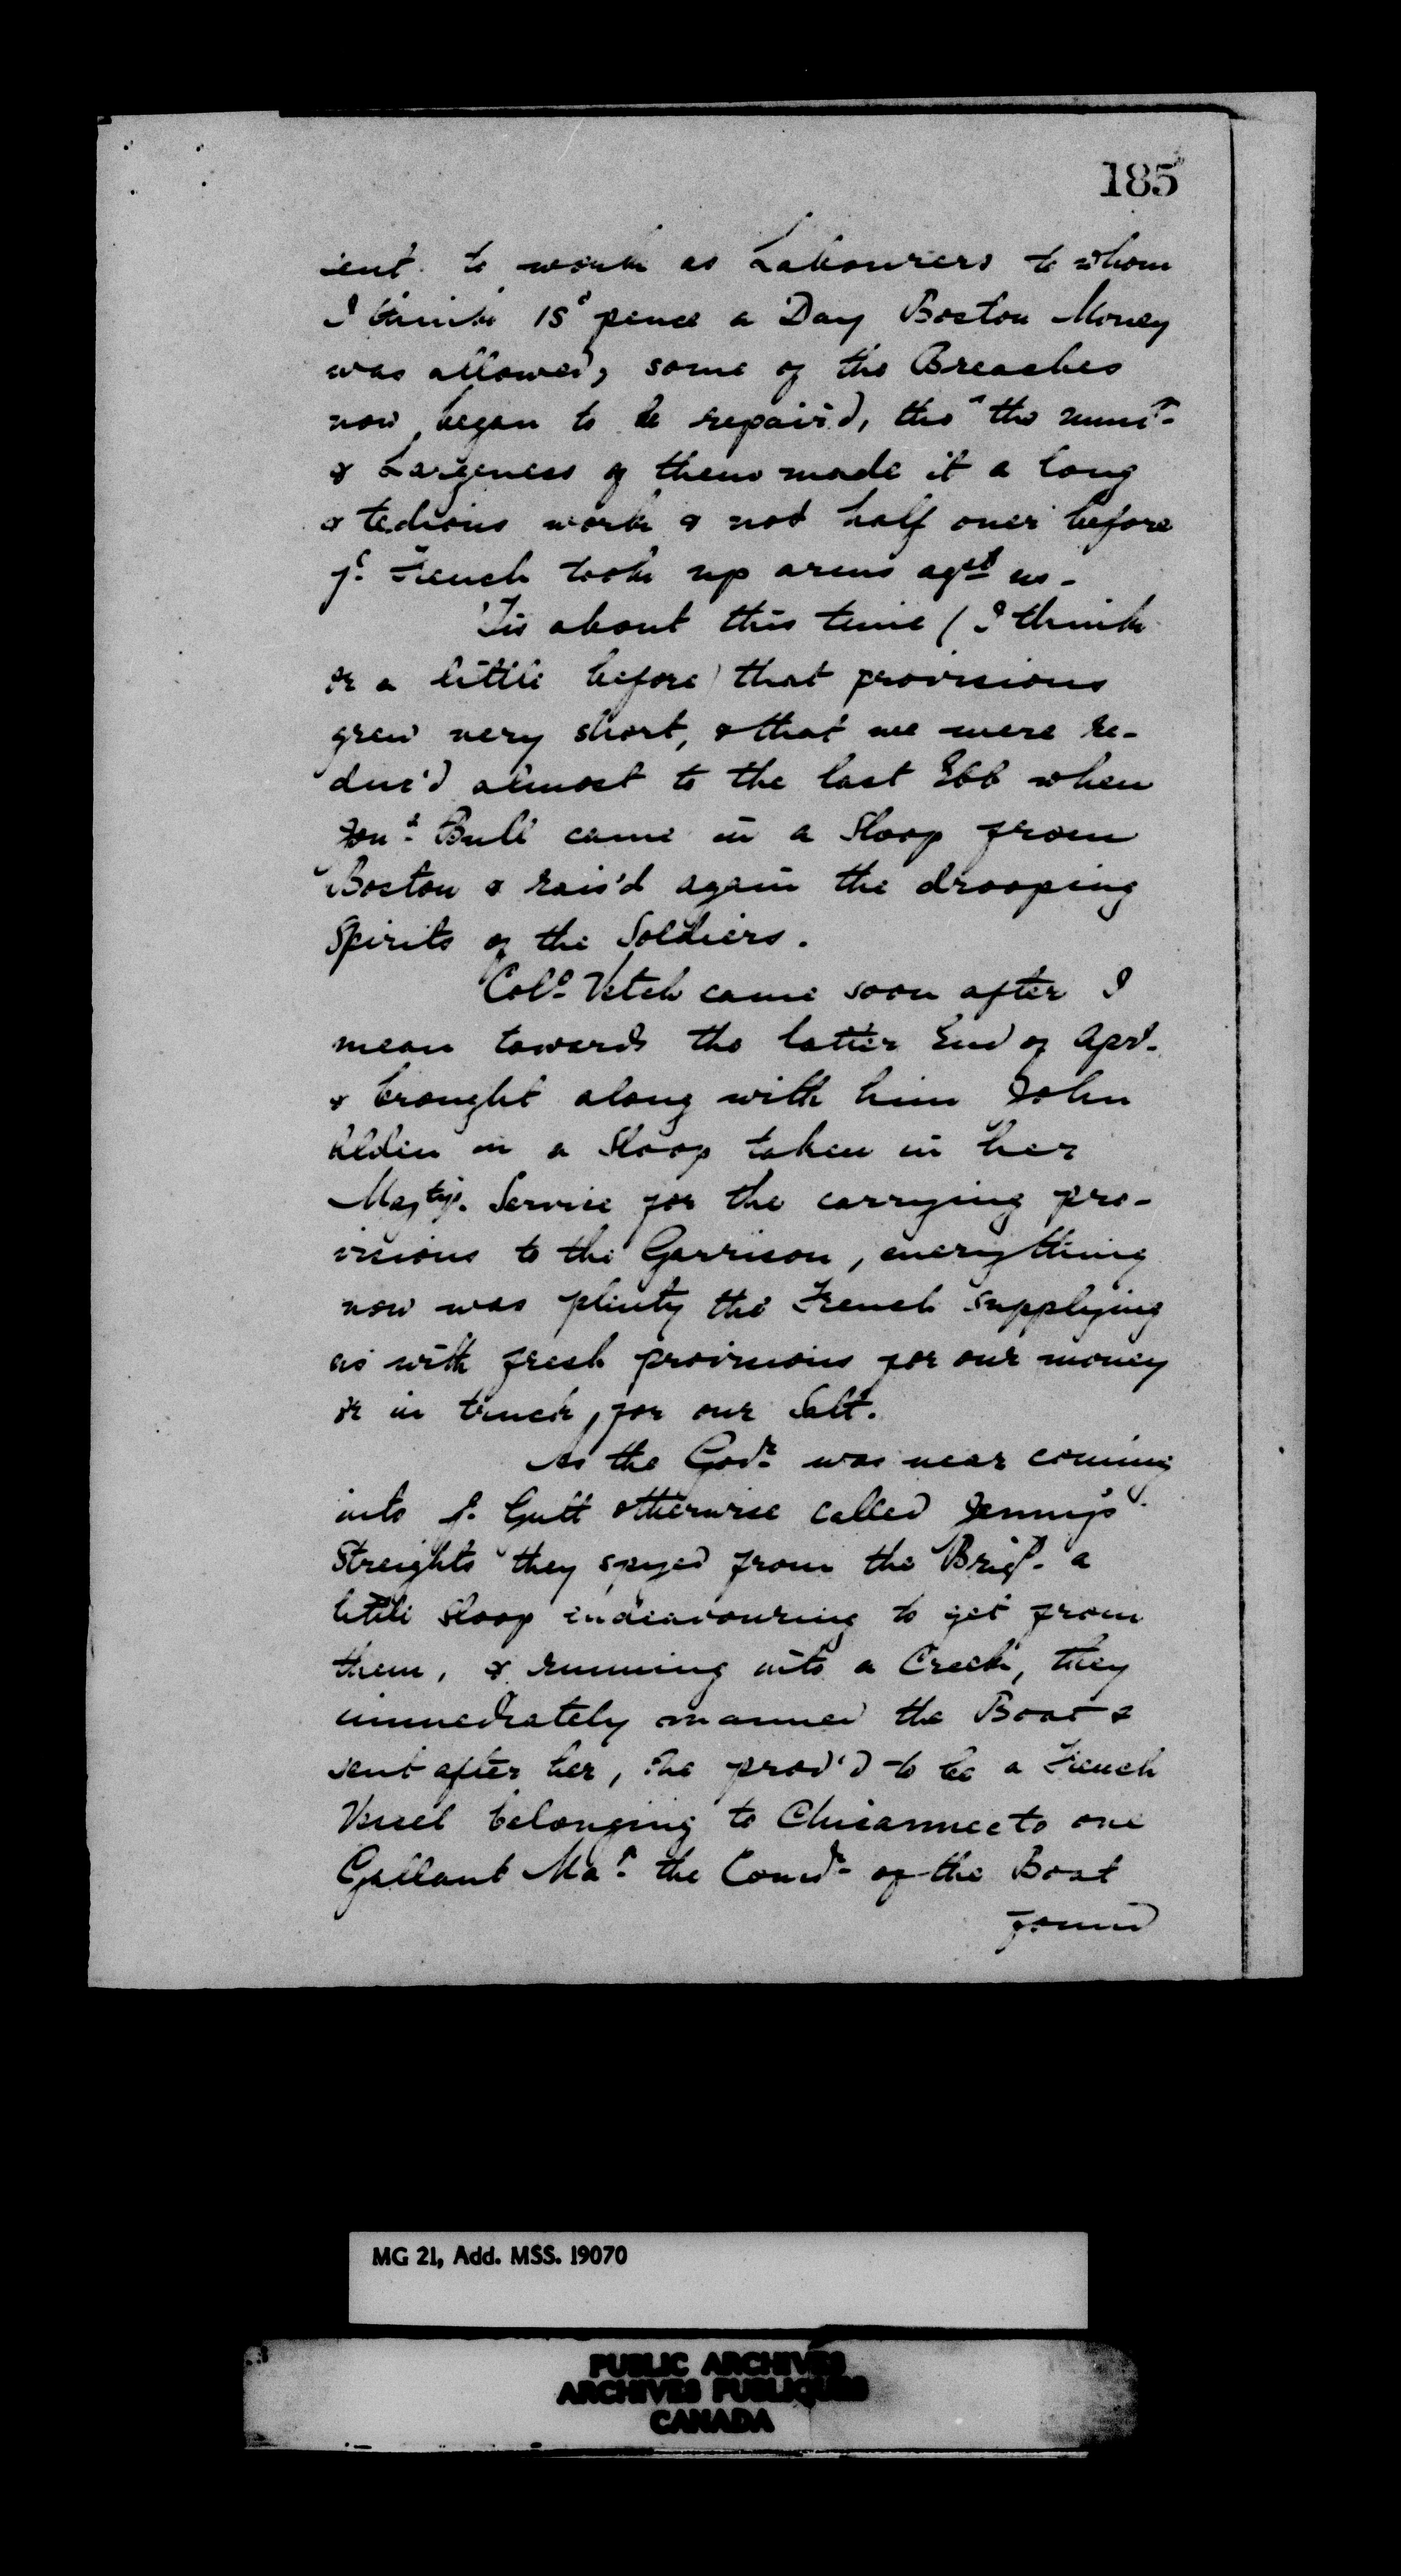 185
sent to work as Labourers to whom
I think 15d pence a Day Boston Money
was allowed, some of the Breaches
now began to be repair'd, tho' the num.r
& Largeness of them made it a long
& tedious work & not half over before
ye French took up arms agst us-
'Tis about this time (I think
or a little before) that provisions
grew very short, & that we were re-
duc'd almost to the last Ebb when
Bull came in a Sloop from
Boston & rais'd again the drooping
Spirits of the Soldiers.
Colo Vetch came soon after I
mean towards the latter End of Aprl.
& brought along with him John
Alden in a Sloop taken in her
Majtys. Service for the carrying pro-
visions to the Garrison, everything
now was plenty the French supplying
us with fresh provisions for our money
or in truck, for our Salt.
As the Govr was near coming
into ye Gutt otherwise called Jenny's
Streights they spyed from the Brigt a
little Sloop endeavouring to get from
them, & running into a Creek, they
immediately manned the Boat &
sent after her, she prov'd to be a French
Vessel belonging to Chicannecto one
Gallant Mar the Comdr of the Boat
found
MG 21, Add. MSS. 19070
PUBLIC ARCHIVES
ARCHIVES PUBLIQUES
CANADA